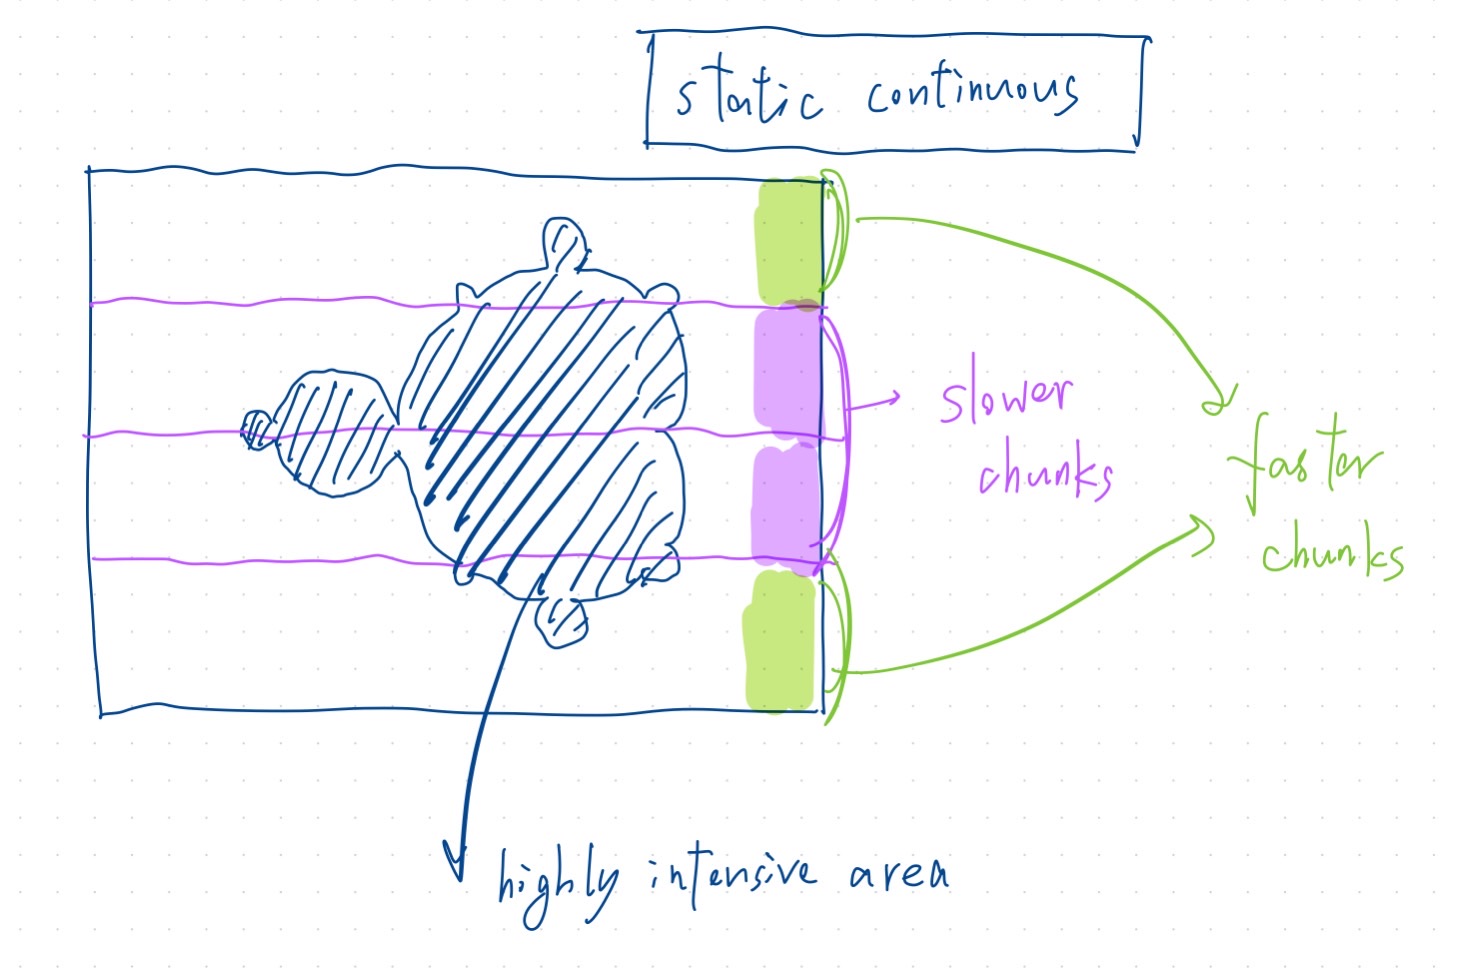 static continuous
slower
chunks
faster
chunks
highly intensive area